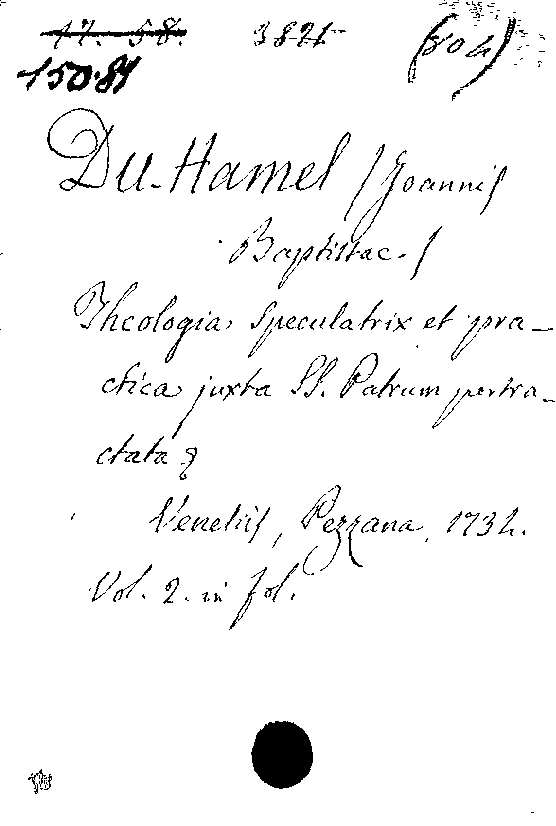 17. 58. 3821 (804)
150.81
Du-Hamel / Joannis
Baptistae. /
Theologia speculatrix et pra-
ctica juxta SS. Patrum pertra-
ctata &
Venetiis, Pezzana, 1734.
Vol. 2. in fol.